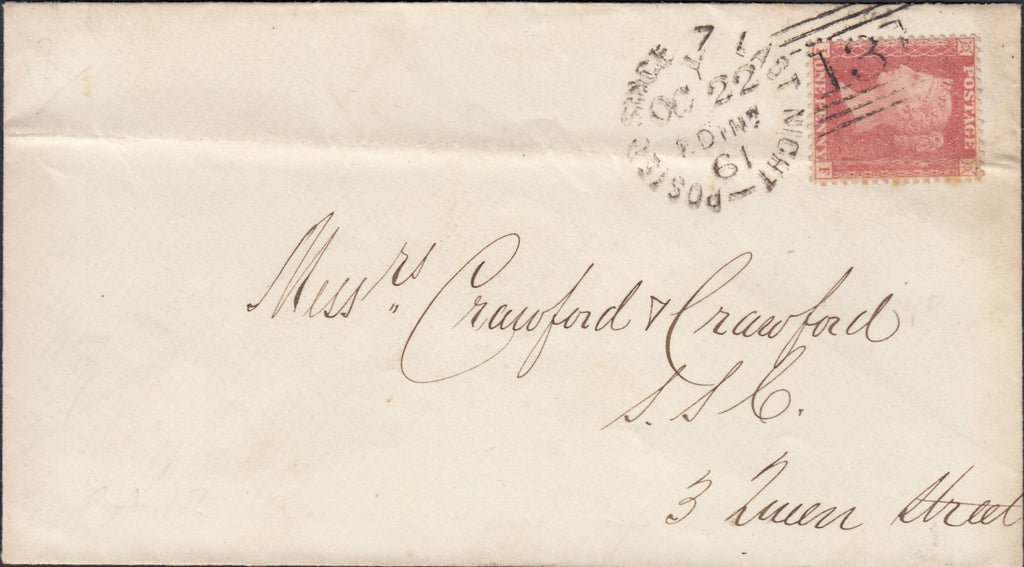 POSTED SINCE 7 LAST NIGHT
OC 22
EDINR
61
131
POSTAGE
ONE PENNY
Messrs Crawford & Crawford
S. S. C.
3 Queen Street